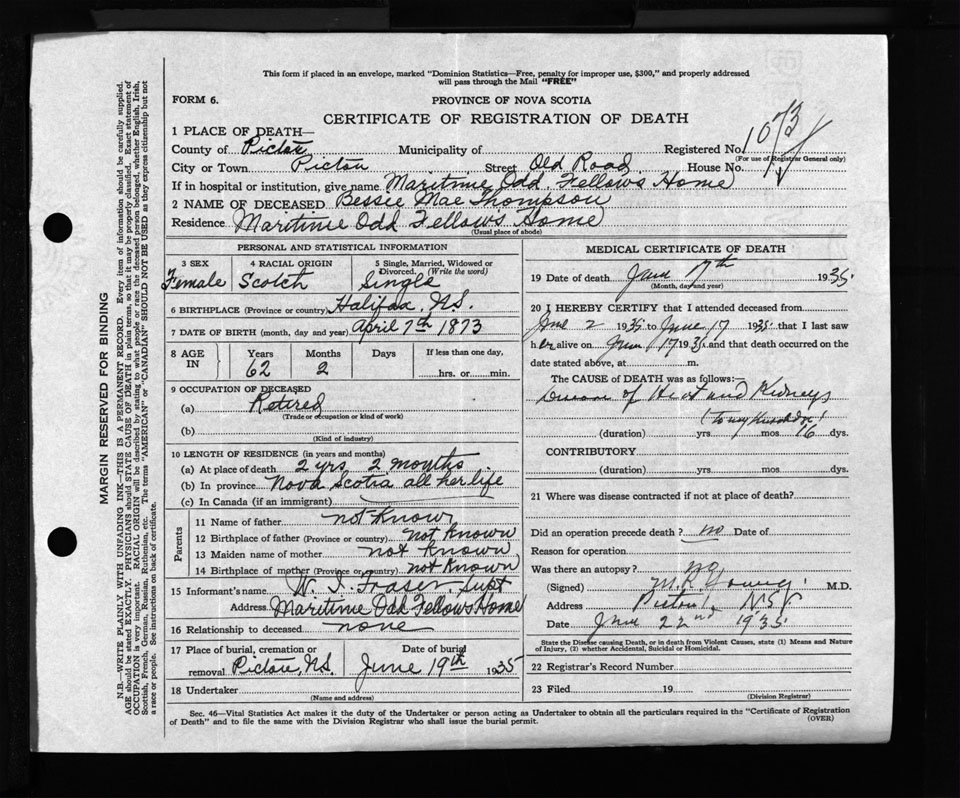 This form if placed in an envelope, marked "Dominion Statistics—Free, penalty for improper use, $300," and properly addressed
will pass through the Mail "FREE"
FORM 6.
PROVINCE OF NOVA SCOTIA
CERTIFICATE OF REGISTRATION OF DEATH
1073
1 PLACE OF DEATH—
County of Pictou Municipality of Registered No.
(For use of Registrar General only)
City or Town Pictou Street Old Road House No.
If in hospital or institution, give name Maritime Odd Fellows Home
2 NAME OF DECEASED Bessie Mae Thompson
Residence Maritime Odd Fellows Home
(Usual place of abode)
PERSONAL AND STATISTICAL INFORMATION
3 SEX 4 RACIAL ORIGIN 5 Single, Married, Widowed or
Divorced. (Write the word)
Female Scotch Single
6 BIRTHPLACE (Province or country) Halifax N.S.
7 DATE OF BIRTH (month, day and year) April 7th 1873
8 AGE IN Years Months Days If less than one day,
62 2 hrs. or min.
9 OCCUPATION OF DECEASED
(a) Retired
(Trade or occupation or kind of work)
(b)
(Kind of industry)
10 LENGTH OF RESIDENCE (in years and months)
(a) At place of death 2 yrs 2 months
(b) In province Nova Scotia all her life
(c) In Canada (if an immigrant)
Parents
11 Name of father not Know
12 Birthplace of father (Province or country) not Known
13 Maiden name of mother not Known
14 Birthplace of mother (Province or country) not Known
15 Informant's name W. I. Fraser Supt
Address Maritime Odd Fellows Home
16 Relationship to deceased none
17 Place of burial, cremation or Date of burial
removal Pictou, N.S. June 19th 1935
18 Undertaker
(Name and address)
MEDICAL CERTIFICATE OF DEATH
19 Date of death June 17th 1935
(Month, day and year)
20 I HEREBY CERTIFY that I attended deceased from
June 2 1935 to June 17 1935 that I last saw
her alive on June 17 1935 and that death occurred on the
date stated above, at m.
The CAUSE of DEATH was as follows:
Disease of Heart and Kidneys
(to my knowledge)
(duration) yrs mos 16 dys.
CONTRIBUTORY
(duration) yrs. mos. dys.
21 Where was disease contracted if not at place of death?
Did an operation precede death? no Date of
Reason for operation
Was there an autopsy? no
(Signed) M.R. Young M.D.
Address Pictou, N.S.
Date June 22nd 1935
State the Disease causing Death, or in death from Violent Causes, state (1) Means and Nature
of Injury, (2) whether Accidental, Suicidal or Homicidal.
22 Registrar's Record Number
23 Filed 19
(Division Registrar)
Sec. 46—Vital Statistics Act makes it the duty of the Undertaker or person acting as Undertaker to obtain all the particulars required in the "Certificate of Registration
of Death" and to file the same with the Division Registrar who shall issue the burial permit.
(OVER)
MARGIN RESERVED FOR BINDING
N.B.—WRITE PLAINLY WITH UNFADING INK—THIS IS A PERMANENT RECORD. Every item of information should be carefully supplied.
AGE should be stated EXACTLY. PHYSICIANS should STATE CAUSE OF DEATH in plain terms, so that it may be properly classified. Exact statement of
OCCUPATION is very important. RACIAL ORIGIN will be described by stating to what people or race the deceased person belonged, whether English, Irish,
Scottish, French, German, Russian, Ruthenian, etc. The terms "AMERICAN" or "CANADIAN" SHOULD NOT BE USED as they express citizenship but not
a race or people. See instructions on back of certificate.